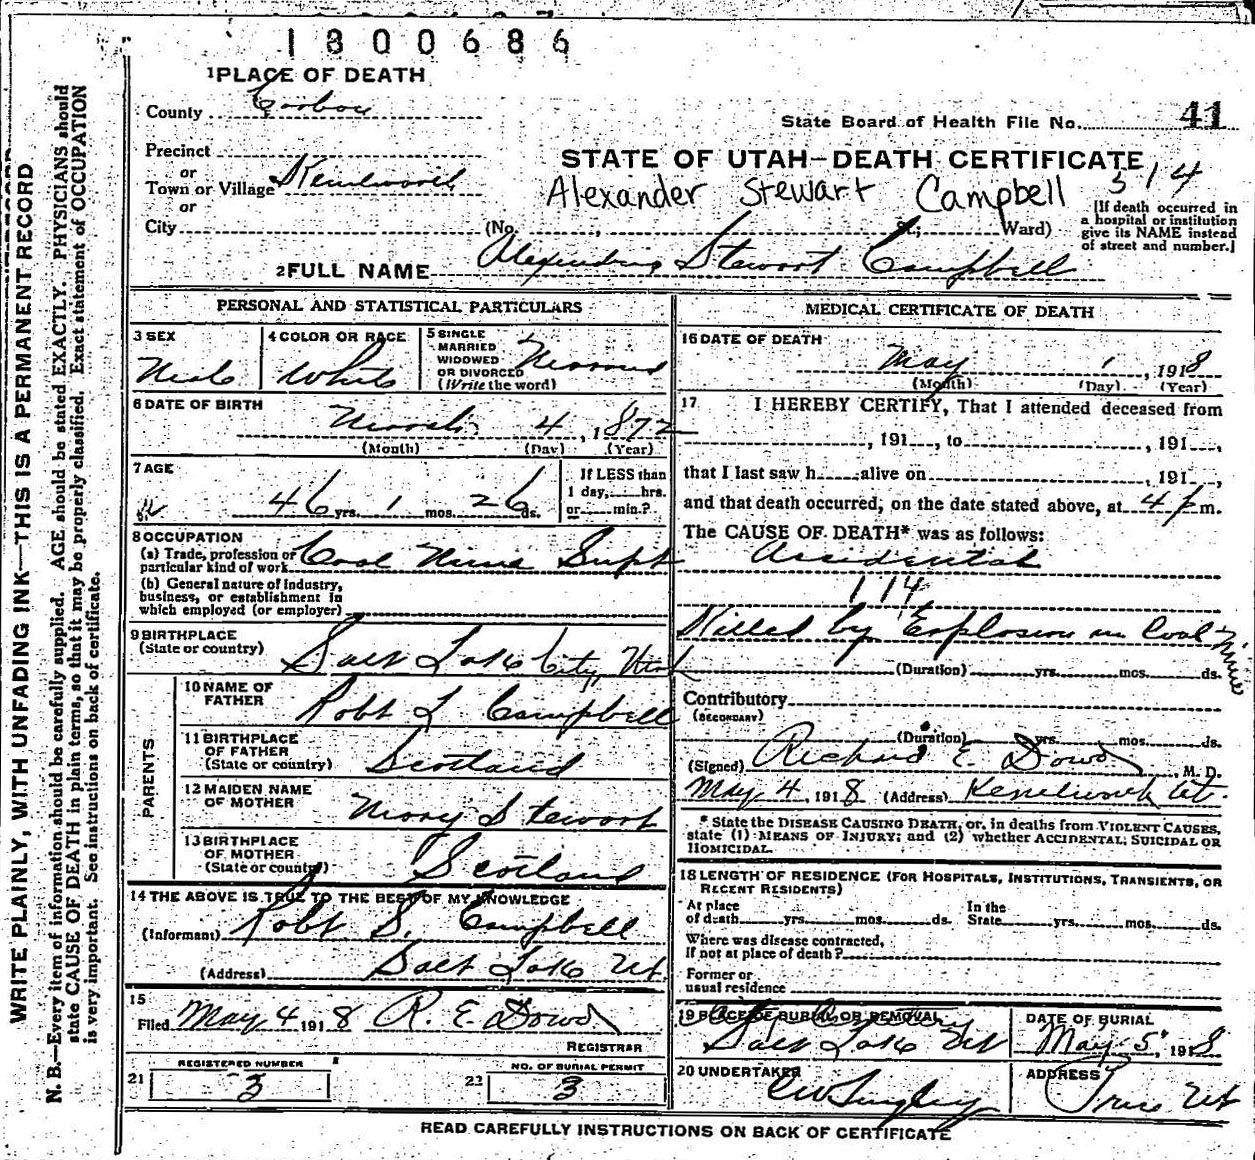 1800686
1 PLACE OF DEATH
County Carbon
State Board of Health File No. 41
Precinct
or
Town or Village Kenilworth
or
City (No. , St.; Ward)
STATE OF UTAH—DEATH CERTIFICATE
314
Alexander Stewart Campbell
[If death occurred in
a hospital or institution
give its NAME instead
of street and number.]
2 FULL NAME Stewart Campbell
PERSONAL AND STATISTICAL PARTICULARS
3 SEX
Male
4 COLOR OR RACE
White
5 SINGLE
MARRIED
WIDOWED
OR DIVORCED
(Write the word)
Married
6 DATE OF BIRTH
March 4, 1872
(Month) (Day) (Year)
7 AGE
46 yrs. 1 mos. 26 ds.
If LESS than
1 day, hrs.
or min.?
8 OCCUPATION
(a) Trade, profession or
particular kind of work Coal Mine Supt
(b) General nature of industry,
business, or establishment in
which employed (or employer)
9 BIRTHPLACE
(State or country)
Salt Lake City, Utah
PARENTS
10 NAME OF
FATHER
Robt L Campbell
11 BIRTHPLACE
OF FATHER
(State or country)
Scotland
12 MAIDEN NAME
OF MOTHER
Mary Stewart
13 BIRTHPLACE
OF MOTHER
(State or country)
Scotland
14 THE ABOVE IS TRUE TO THE BEST OF MY KNOWLEDGE
(Informant) Robt S. Campbell
(Address) Salt Lake Ut
15
Filed May 4 1918 R. E. Dowd
REGISTRAR
REGISTERED NUMBER
21 3
NO. OF BURIAL PERMIT
22 3
MEDICAL CERTIFICATE OF DEATH
16 DATE OF DEATH
May 1, 1918
(Month) (Day) (Year)
17 I HEREBY CERTIFY, That I attended deceased from
, 191 , to , 191 ,
that I last saw h alive on , 191 ,
and that death occurred, on the date stated above, at 4 P m.
The CAUSE OF DEATH* was as follows:
Accidental
114
Killed by Explosion in Coal Mine
(Duration) yrs. mos. ds.
Contributory
(SECONDARY)
(Duration) yrs. mos. ds.
(Signed) Richard E. Dowd, M. D.
May 4, 1918 (Address) Kenilworth Ut.
* State the DISEASE CAUSING DEATH, or, in deaths from VIOLENT CAUSES,
state (1) MEANS OF INJURY; and (2) whether ACCIDENTAL, SUICIDAL OR
HOMICIDAL.
18 LENGTH OF RESIDENCE (FOR HOSPITALS, INSTITUTIONS, TRANSIENTS, OR
RECENT RESIDENTS)
At place
of death yrs. mos. ds.
In the
State yrs. mos. ds.
Where was disease contracted,
if not at place of death?
Former or
usual residence
19 PLACE OF BURIAL OR REMOVAL
Salt Lake Ut
DATE OF BURIAL
May 5, 1918
20 UNDERTAKER
ADDRESS
Price Ut
READ CAREFULLY INSTRUCTIONS ON BACK OF CERTIFICATE
WRITE PLAINLY, WITH UNFADING INK—THIS IS A PERMANENT RECORD
N. B.—Every item of information should be carefully supplied. AGE should be stated EXACTLY. PHYSICIANS should
state CAUSE OF DEATH in plain terms, so that it may be properly classified. Exact statement of OCCUPATION
is very important. See instructions on back of certificate.